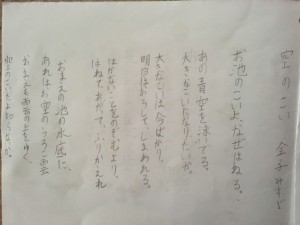 空のこい 金子みすゞ
お池のこいよ、なぜはねる。
あの青空を泳いでる、
大きなこいになりたいか。
大きなこいは、今ばかり、
明日はおろして、しまわれる。
はかないことをのぞむより、
はねておがって、ふりかえれ
おまえの池の水底に、
あれはお空のうろこ雲
おまえも雲の上をゆく、
空のこいだよ、知らないか。